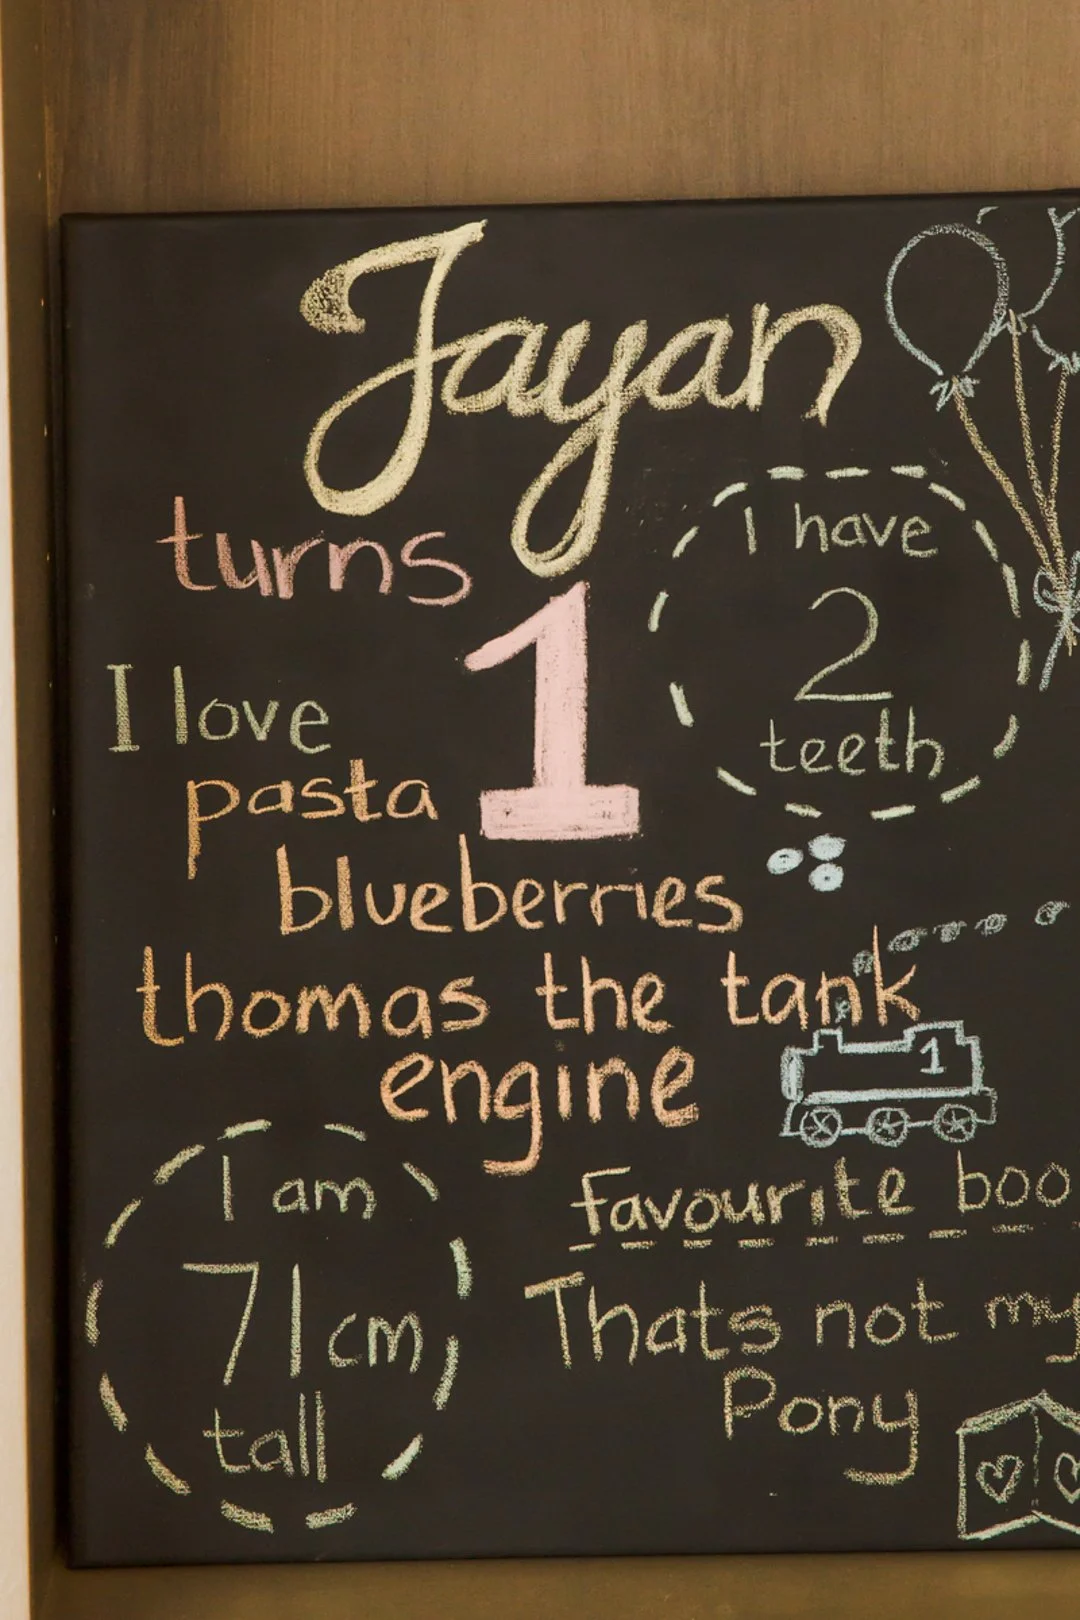 Jayan
turns
1
I have
2
teeth
I love
pasta
blueberries
thomas the tank
engine
1
I am
71cm
tall
favourite boo
Thats not my
Pony